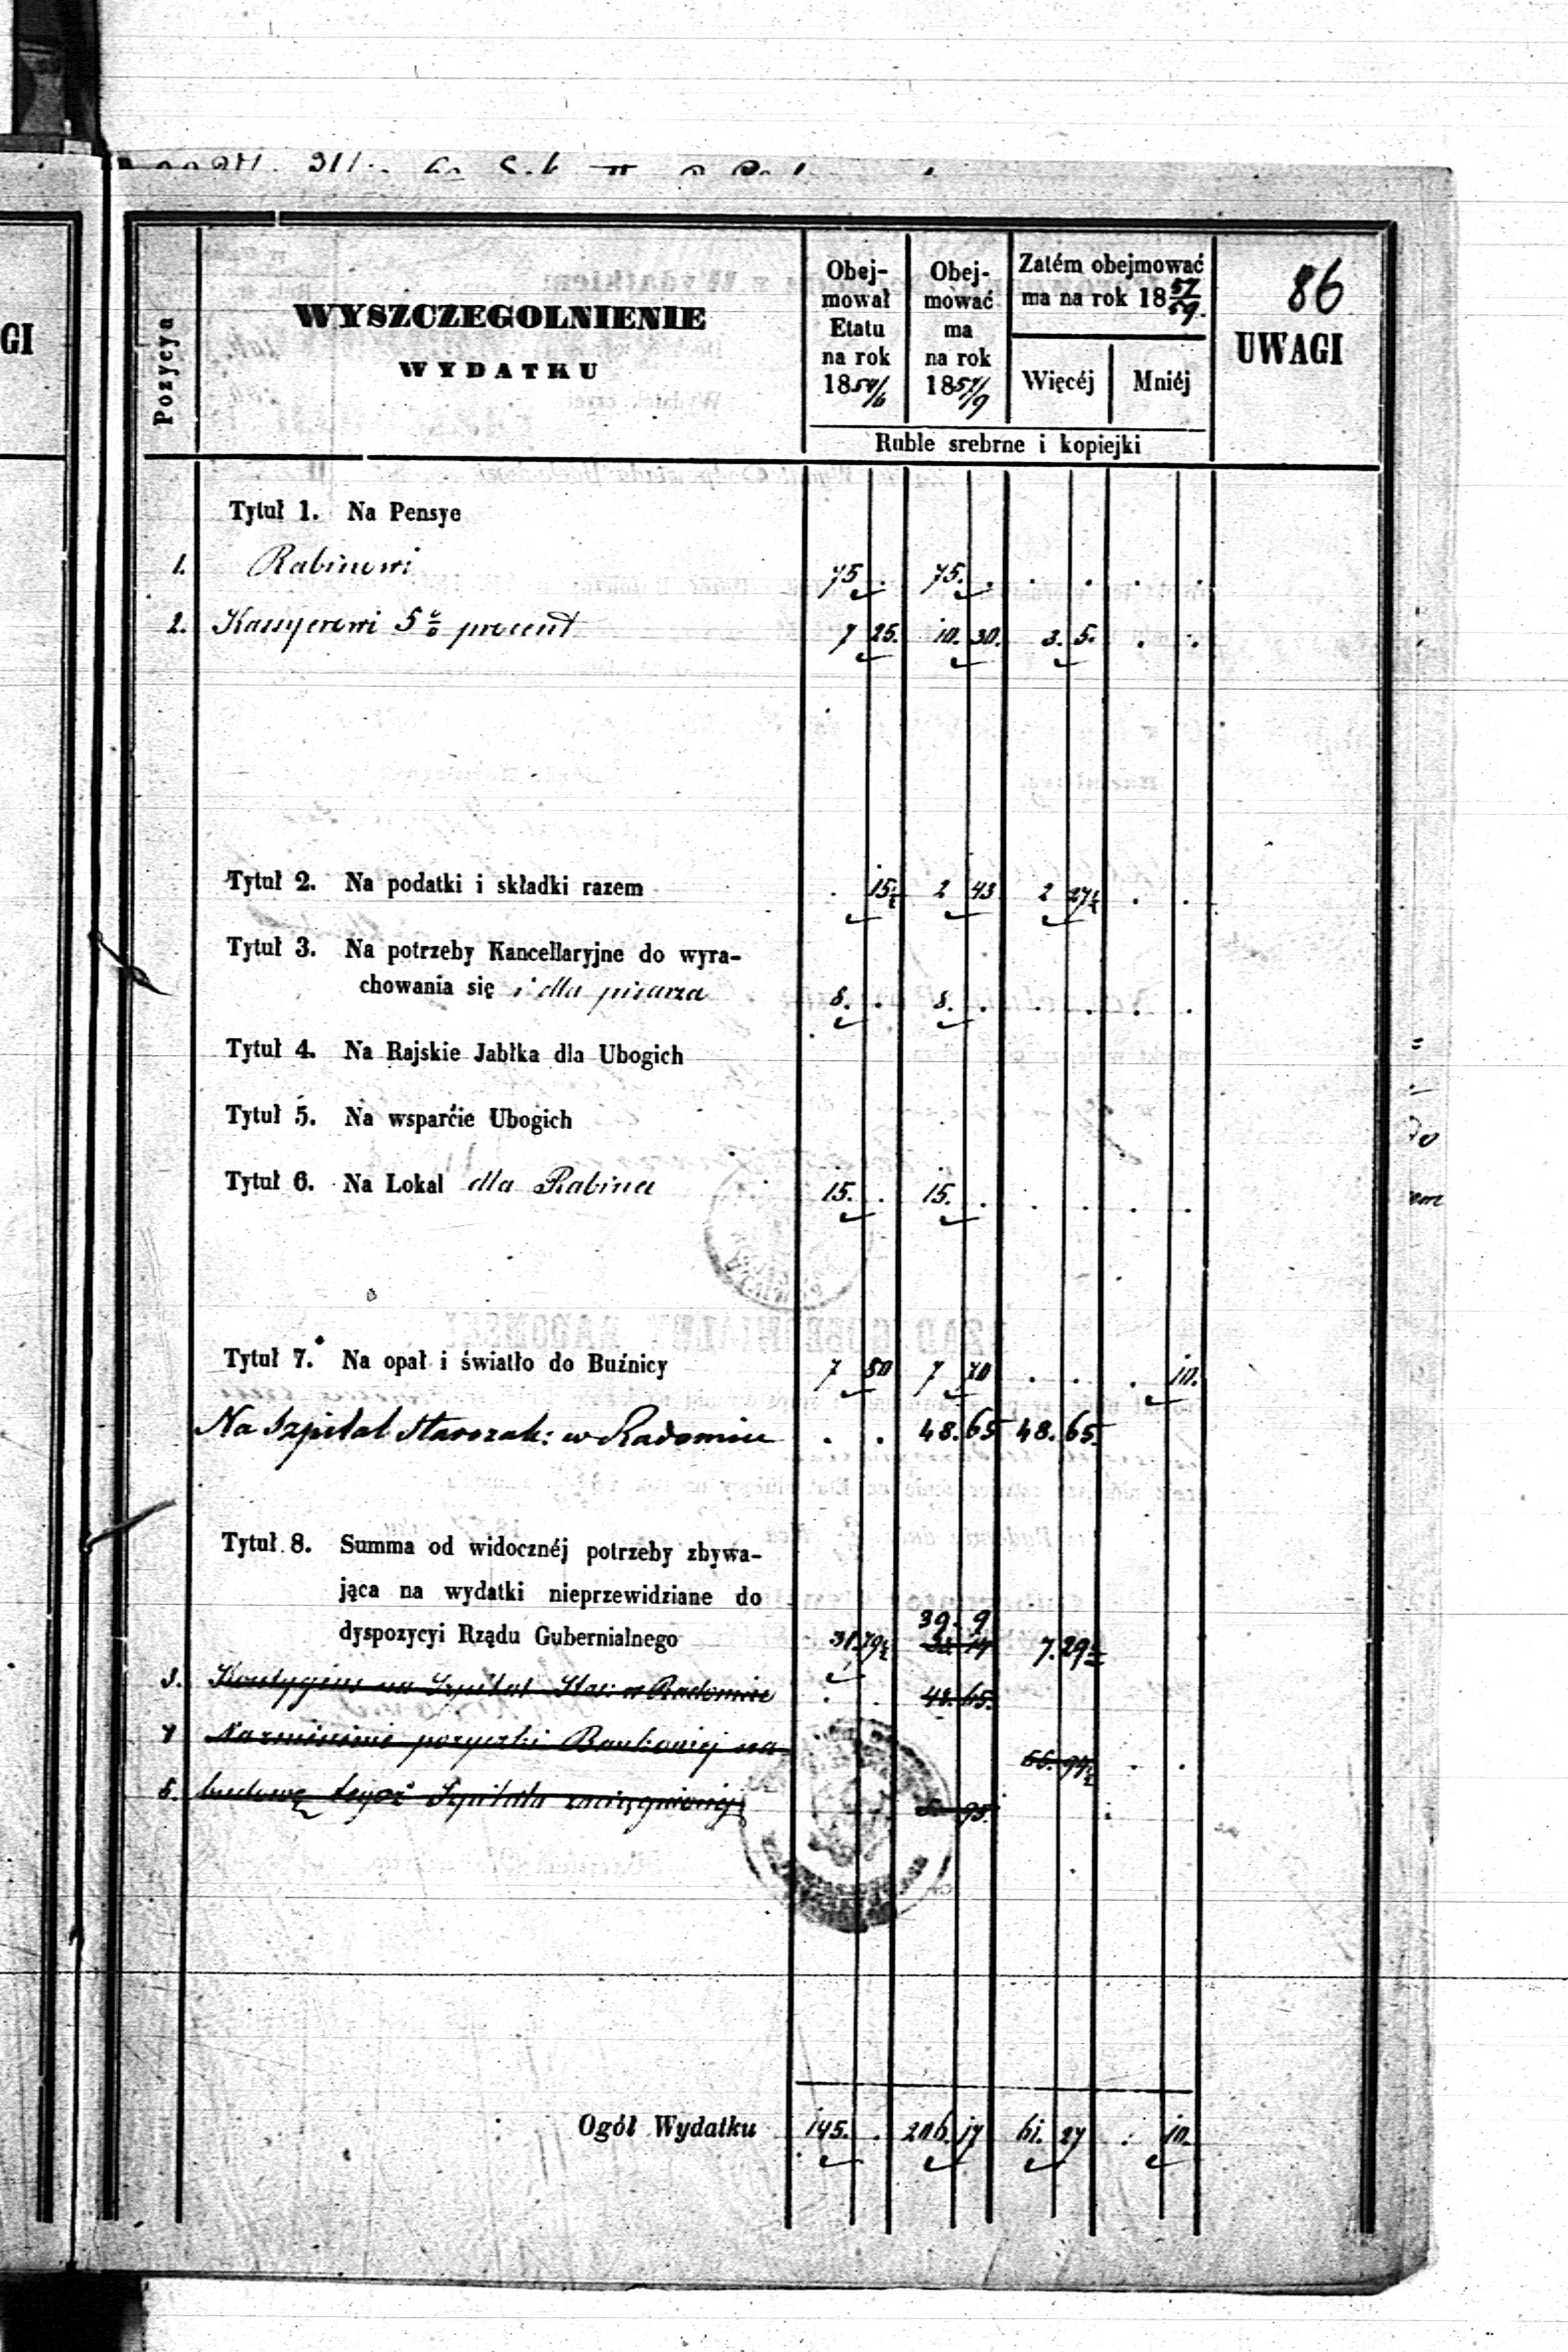 86
Pozycya
WYSZCZEGOLNIENIE
WYDATKU
Obej-
mował
Etatu
na rok
1854/6
Obej-
mować
ma
na rok
1857/9
Zatém obejmować
ma na rok 1857/59.
Więcéj Mniéj
UWAGI
GI
Ruble srebrne i kopiejki
Tytuł 1. Na Pensye
1. Rabinowi 75 . 75. . . . . .
2. Kassyerowi 5% procent 7 25. 10. 30. 3. 5. . .
Tytuł 2. Na podatki i składki razem . 15½ 2 43 2 27½ . .
Tytuł 3. Na potrzeby Kancellaryjne do wyra-
chowania się i dla pisarza 8. . 8. . . . . .
Tytuł 4. Na Rajskie Jabłka dla Ubogich
Tytuł 5. Na wsparcie Ubogich
Tytuł 6. Na Lokal dla Rabina 15. . 15. . . . . .
Tytuł 7. Na opał i światło do Buźnicy 7 80 7 70 . . . 10.
Na Szpital Starozak: w Radomiu . . 48. 65 48. 65.
Tytuł 8. Summa od widocznéj potrzeby zbywa-
jąca na wydatki nieprzewidziane do
39. 9
dyspozycyi Rządu Gubernialnego 31. 79½ 7. 29½
3. Kontygens na Szpital Star: w Radomiu . . 48. 65.
4 Na zniesienie pożyczki Bankowéj na
5. budowę tegoż Szpitala zaciągnionéj 95.
Ogół Wydatku 145. . 206. 17 61. 27 . 10.